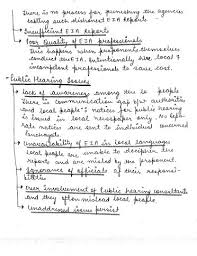 There is no process for punishing the agencies
crafting such dishonest EIA reports
→ Insufficient EIA reports
→ Poor Quality of EIA professionals
This happens when proponents themselves
conduct the EIA. Intentionally hire local &
incompetent professionals to save cost.
- Public Hearing Issues
→ Lack of awareness among the people
There is communication gap b/w authorities
and local people's notices for public hearing
is issued in local newspaper only. No sepa-
rate notices are sent to individual concerned
landmarks.
→ Unavailability of EIA in local language
Local people are unable to decipher the
reports and are misled by the proponent.
→ Ignorance of officials of their respons-
ibilities
→ Over involvement of public hearing consultants
and they often mislead local people
→ Unaddressed issues persist